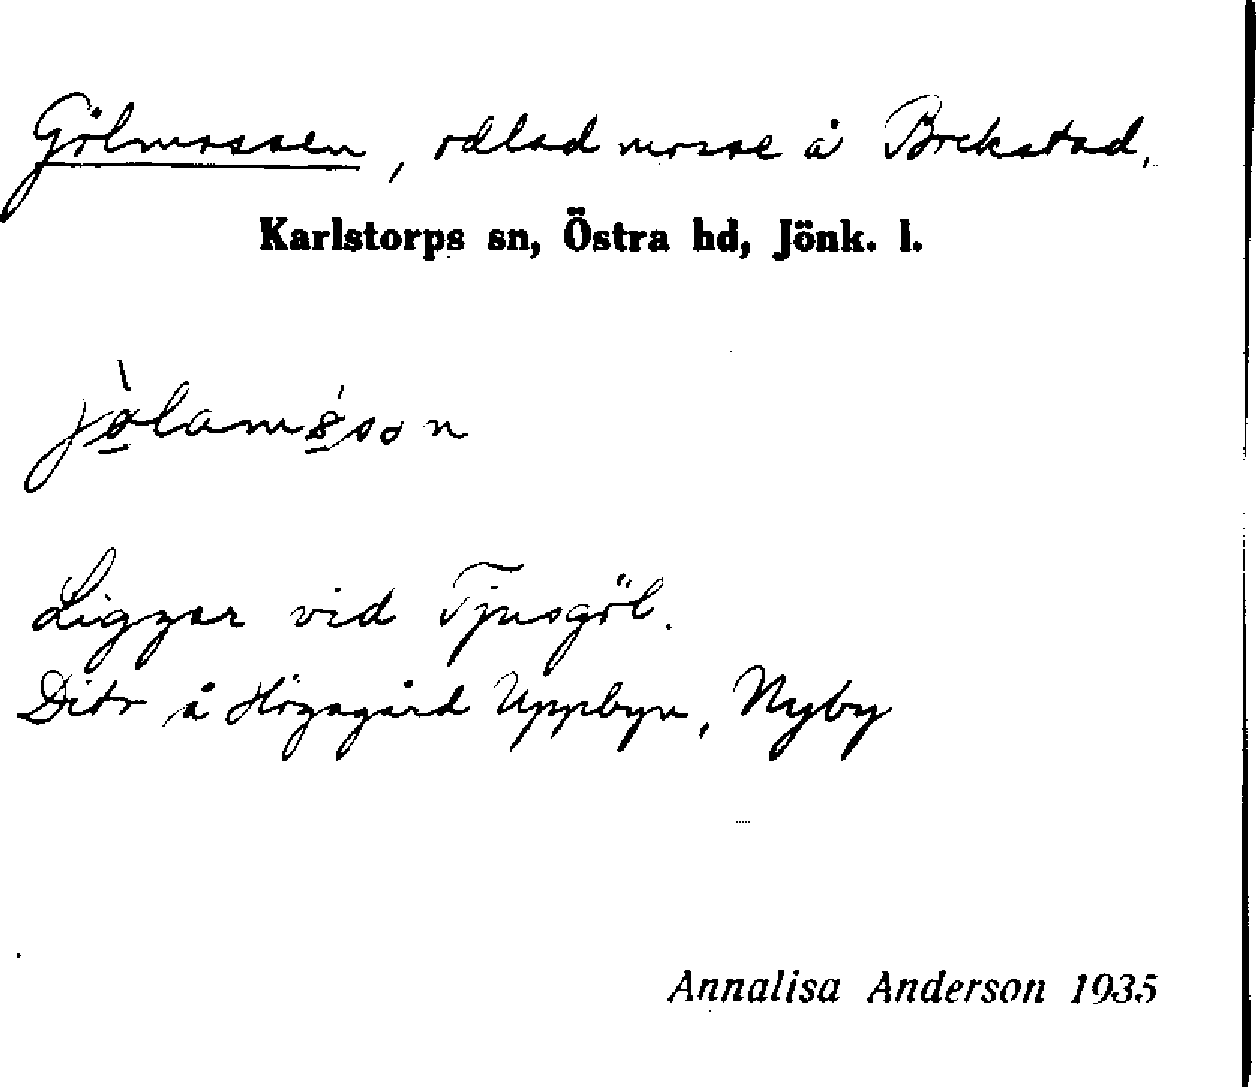 Gölmossen, odlad mosse å Bockstad,
Karlstorps sn, Östra hd, Jönk. l.
Ligger vid Tjusgöl.
Dito å Högagärd Uppbyn, Nyby
Annalisa Anderson 1935